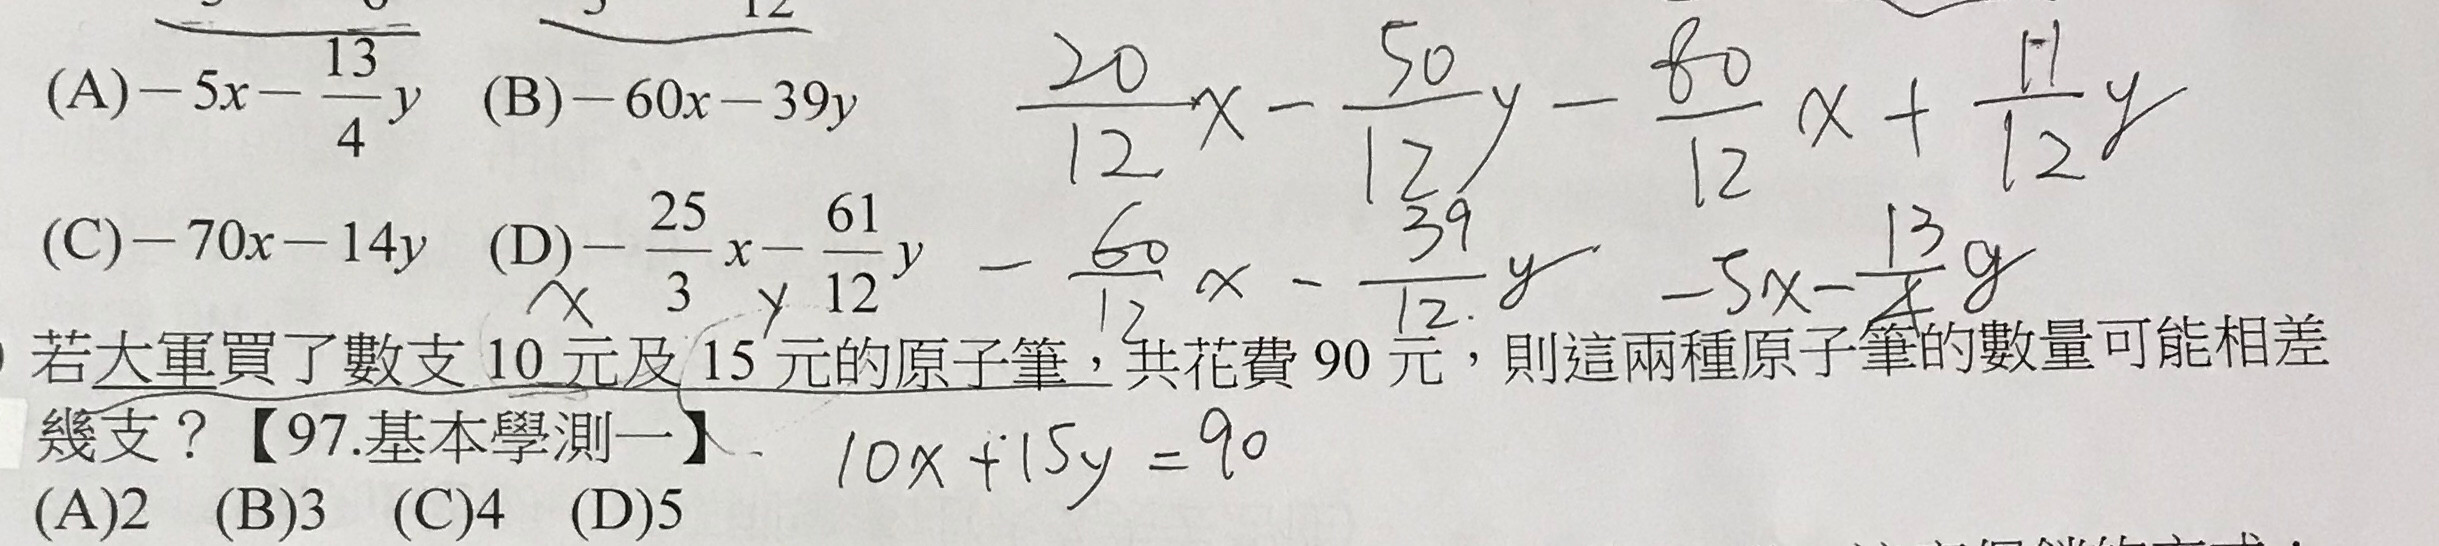 (A)－5x－13/4 y (B)－60x－39y
20/12 x － 50/12 y － 80/12 x + 11/12 y
(C)－70x－14y (D)－25/3 x－61/12 y
－60/12 x － 39/12 y －5x－13/4 y
x y
若大軍買了數支 10 元及 15 元的原子筆，共花費 90 元，則這兩種原子筆的數量可能相差
幾支？【97.基本學測一】 10x+15y=90
(A)2 (B)3 (C)4 (D)5